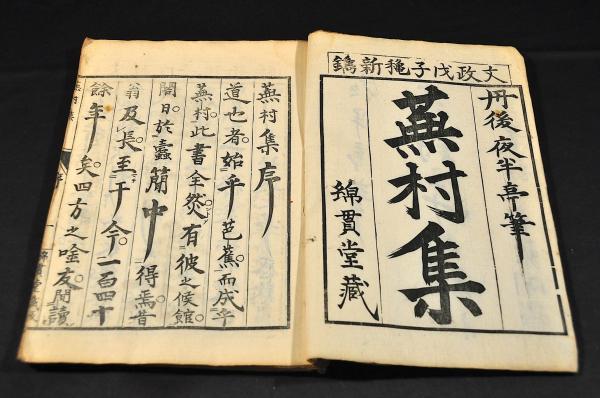 文政戊子穐新鐫
丹後夜半亭筆
蕪村集
綿貫堂藏
蕪村集序
道也者始乎芭蕉而成乎
蕪村此書全然有彼之候館
日於蠹簡中得焉昔
翁及長至于今一百四十
餘年矣四方之唫友閒讀